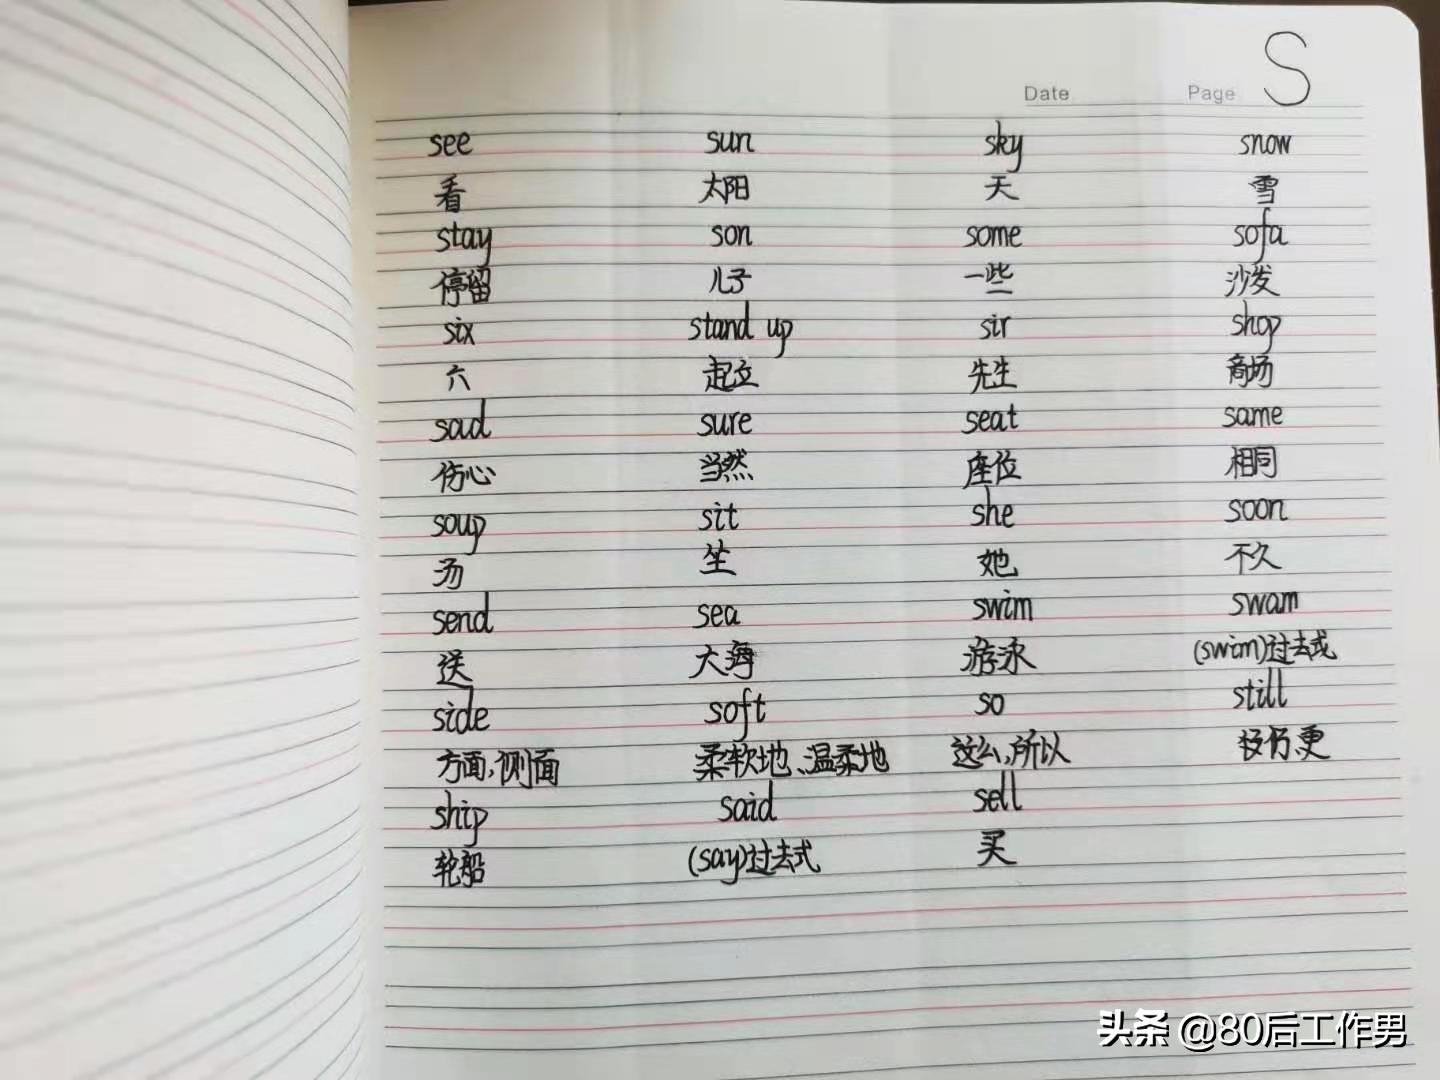 Date Page S
see sun sky snow
看 太阳 天 雪
stay son some sofa
停留 儿子 一些 沙发
six stand up sir shop
六 起立 先生 商场
sad sure seat same
伤心 当然 座位 相同
soup sit she soon
汤 坐 她 不久
send sea swim swam
送 大海 游泳 (swim)过去式
side soft so still
方面,侧面 柔软地、温柔地 这么,所以 仍,更
ship said sell
轮船 (say)过去式 买
头条 @80后工作男